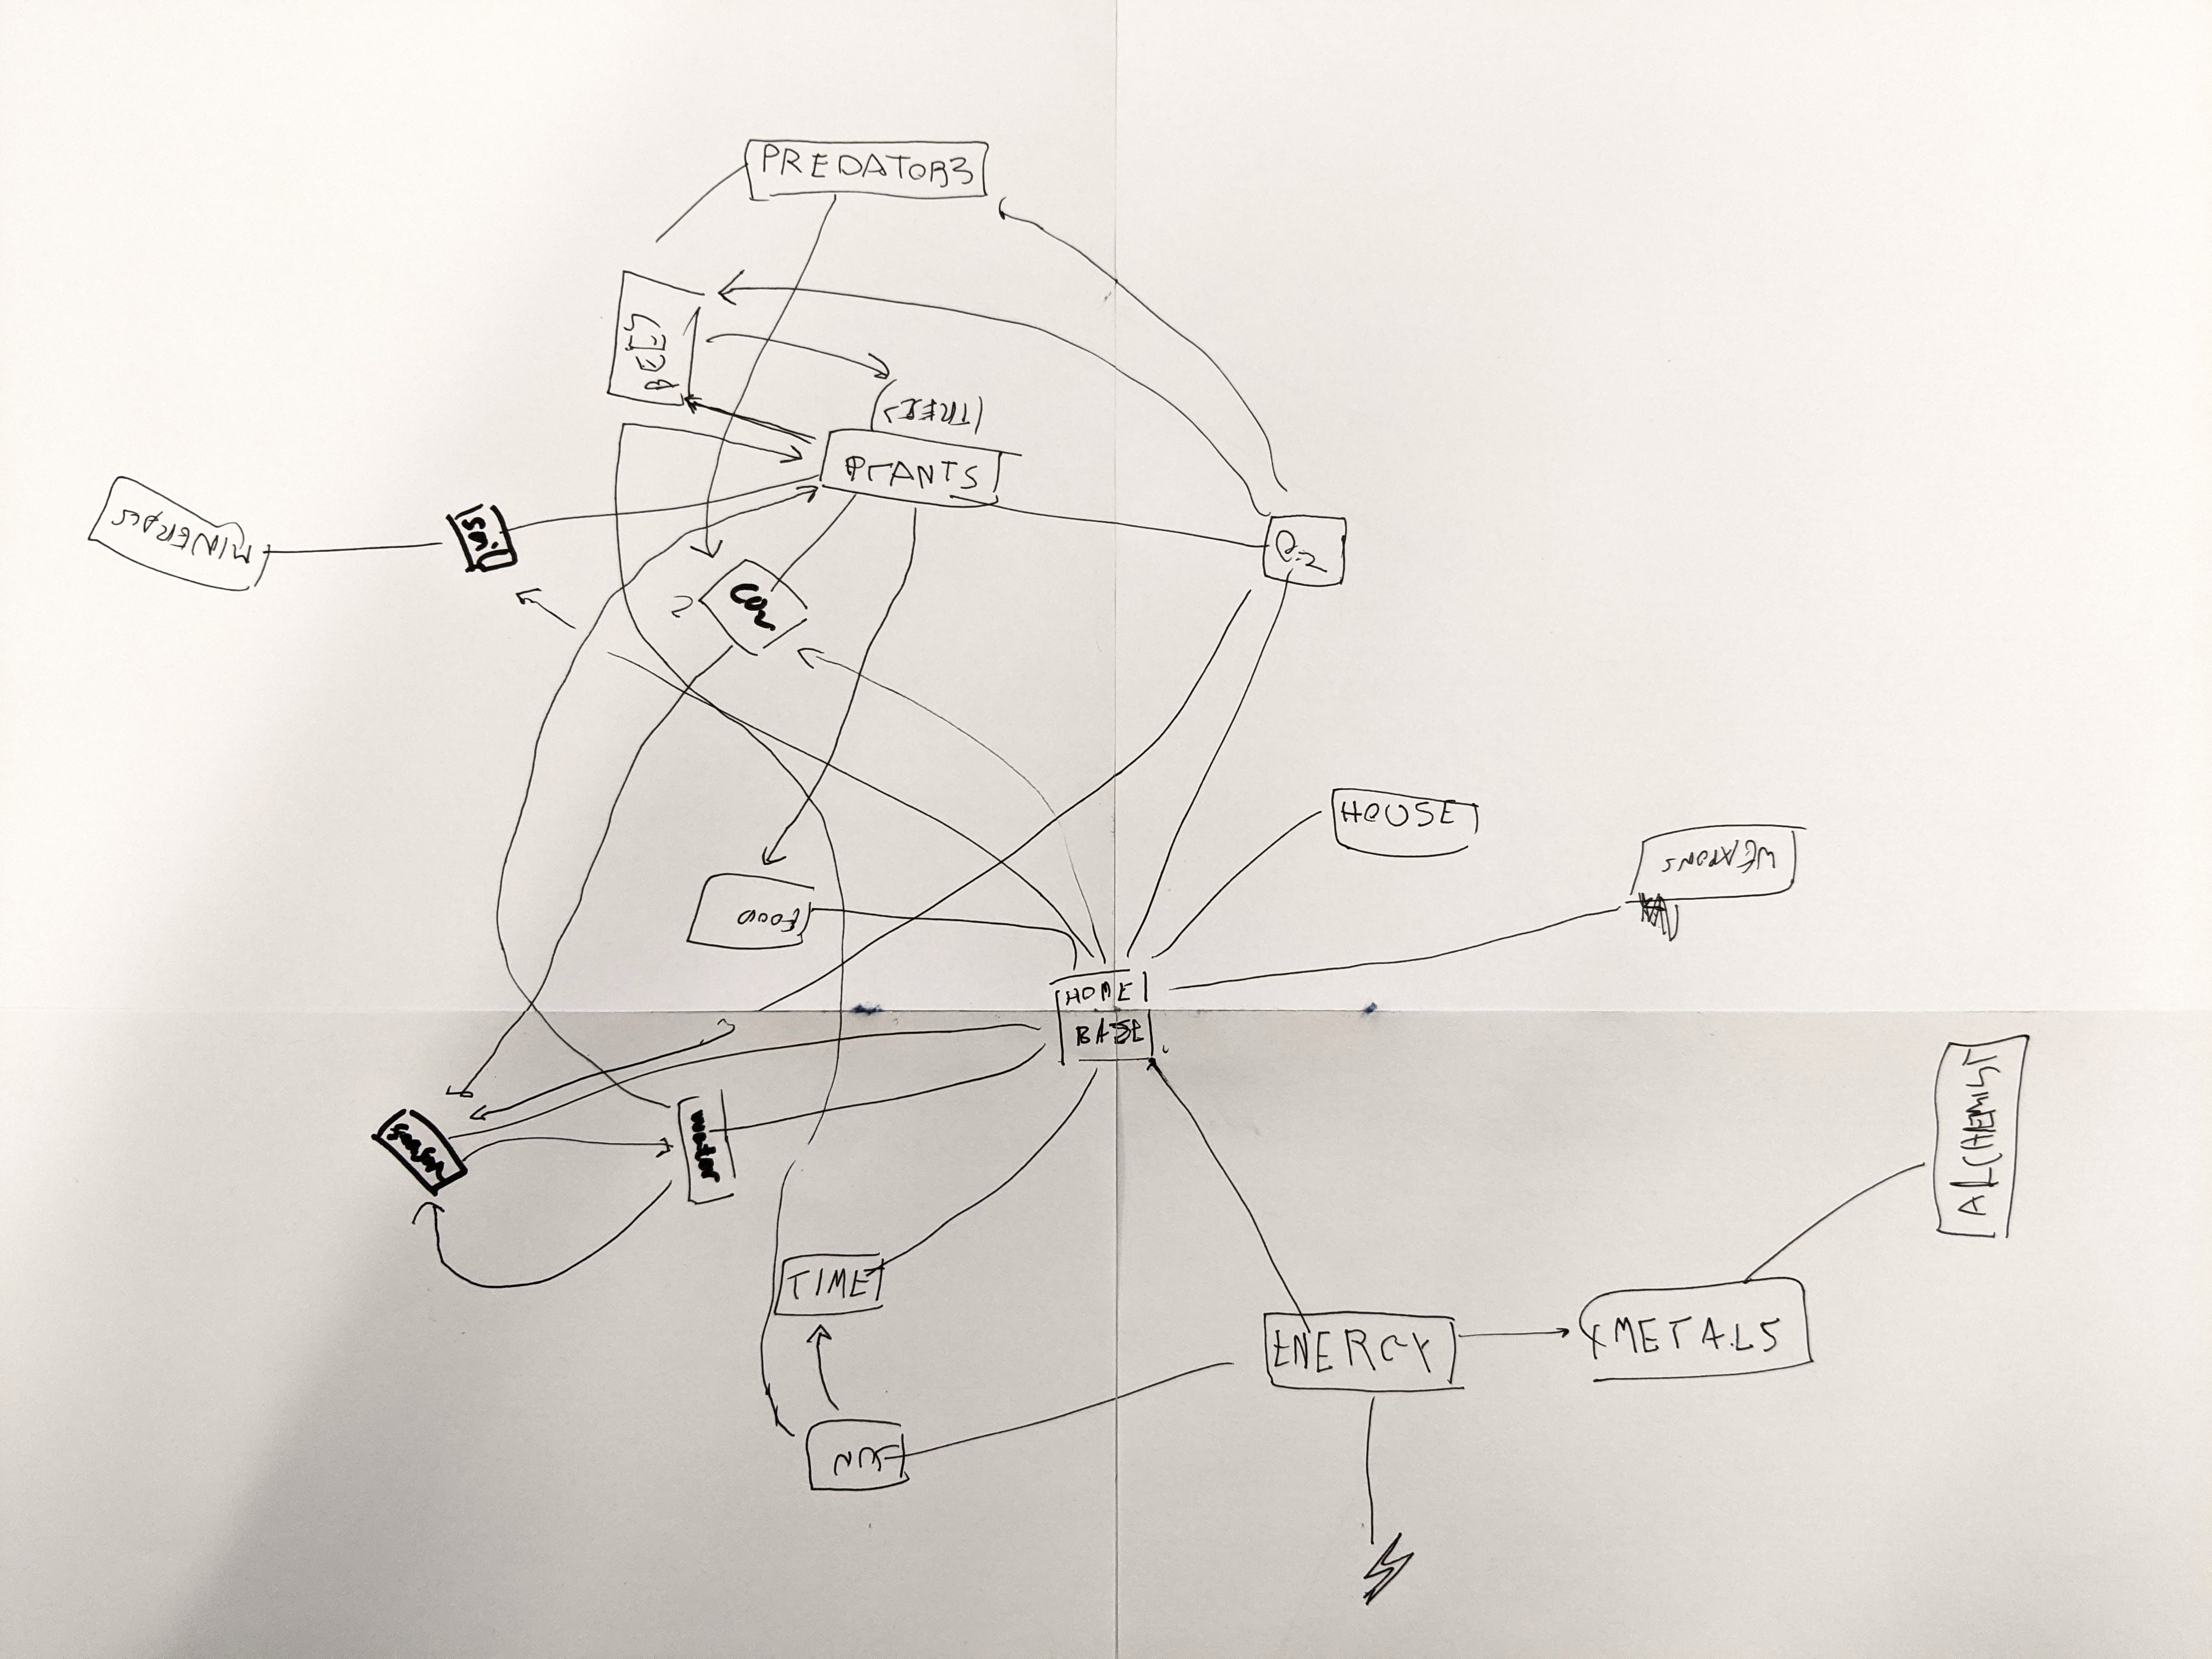 PREDATORS
BEES
(TREE)
PLANTS
MINERALS
soil
CO2
O2
HOUSE
WEAPONS
FOOD
HOME
BASE
water
ALCHEMIST
TIME
ENERGY
METALS
SUN